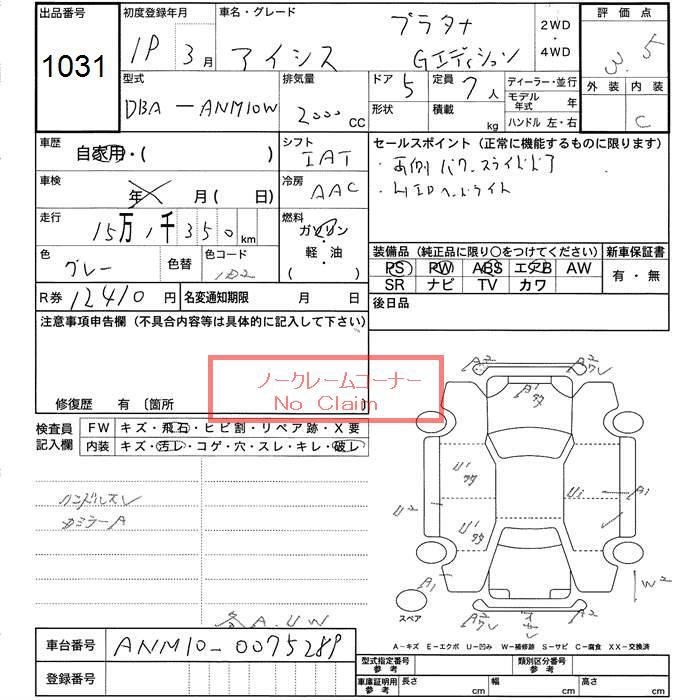 出品番号 初度登録年月 車名・グレード 評価点
1031
プラタナ 2WD
3月 アイシス Gエディション 4WD
3.5
型式 排気量 ドア 5 定員 7人 ディーラー・並行 外装 内装
モデル年式 年
DBA-ANM10W 2000cc 形状 積載 kg ハンドル 左・右 C
車歴 シフト セールスポイント(正常に機能するものに限ります)
自家用・( ) IAT
・HIDヘッドライト
車検 年 月( 日) 冷房 AAC
走行 15万1千350km 燃料
ガソリン
軽・油
( )
装備品(純正品に限り○をつけてください) 新車保証書
色 グレー 色替 色コード 1D2
PS PW ABS エアB AW 有・無
SR ナビ TV カワ
R券 12410円 名変通知期限 月 日 後日品
注意事項申告欄(不具合内容等は具体的に記入して下さい)
ノークレームコーナー
No Claim
修復歴 有〔箇所
検査員記入欄 FW キズ・飛石・ヒビ割・リペア跡・X要
内装 キズ・汚レ・コゲ・穴・スレ・キレ・破レ
ハンドルスレ
カミラーA
A2 A2
A1
U1
U1 A1
U2
U1
A1 W2
スペア
A2 A2
A.U.W
A-キズ E-エクボ U-凹み W-補修跡 S-サビ C-腐食 XX-交換済
車台番号 ANM10-0075289
登録番号
型式指定番号 参考 類別区分番号 参考
車庫証明用 参考 長さ cm 幅 cm 高さ cm